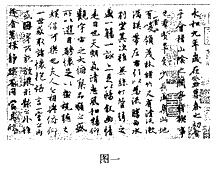 永和九年歲在癸丑暮春之初會
于會稽山陰之蘭亭脩禊事
也群賢畢至少長咸集此地
有崇山峻領茂林脩竹又有清流激
湍映帶左右引以為流觴曲水
列坐其次雖無絲竹管弦之
盛一觴一詠亦足以暢敘幽情
是日也天朗氣清惠風和暢仰
觀宇宙之大俯察品類之盛
所以遊目騁懷足以極視聽之
娛信可樂也夫人之相與俯仰
一世或取諸懷抱悟言一室之內
或因寄所託放浪形骸之外雖
趣舍萬殊靜躁不同當其欣
图一